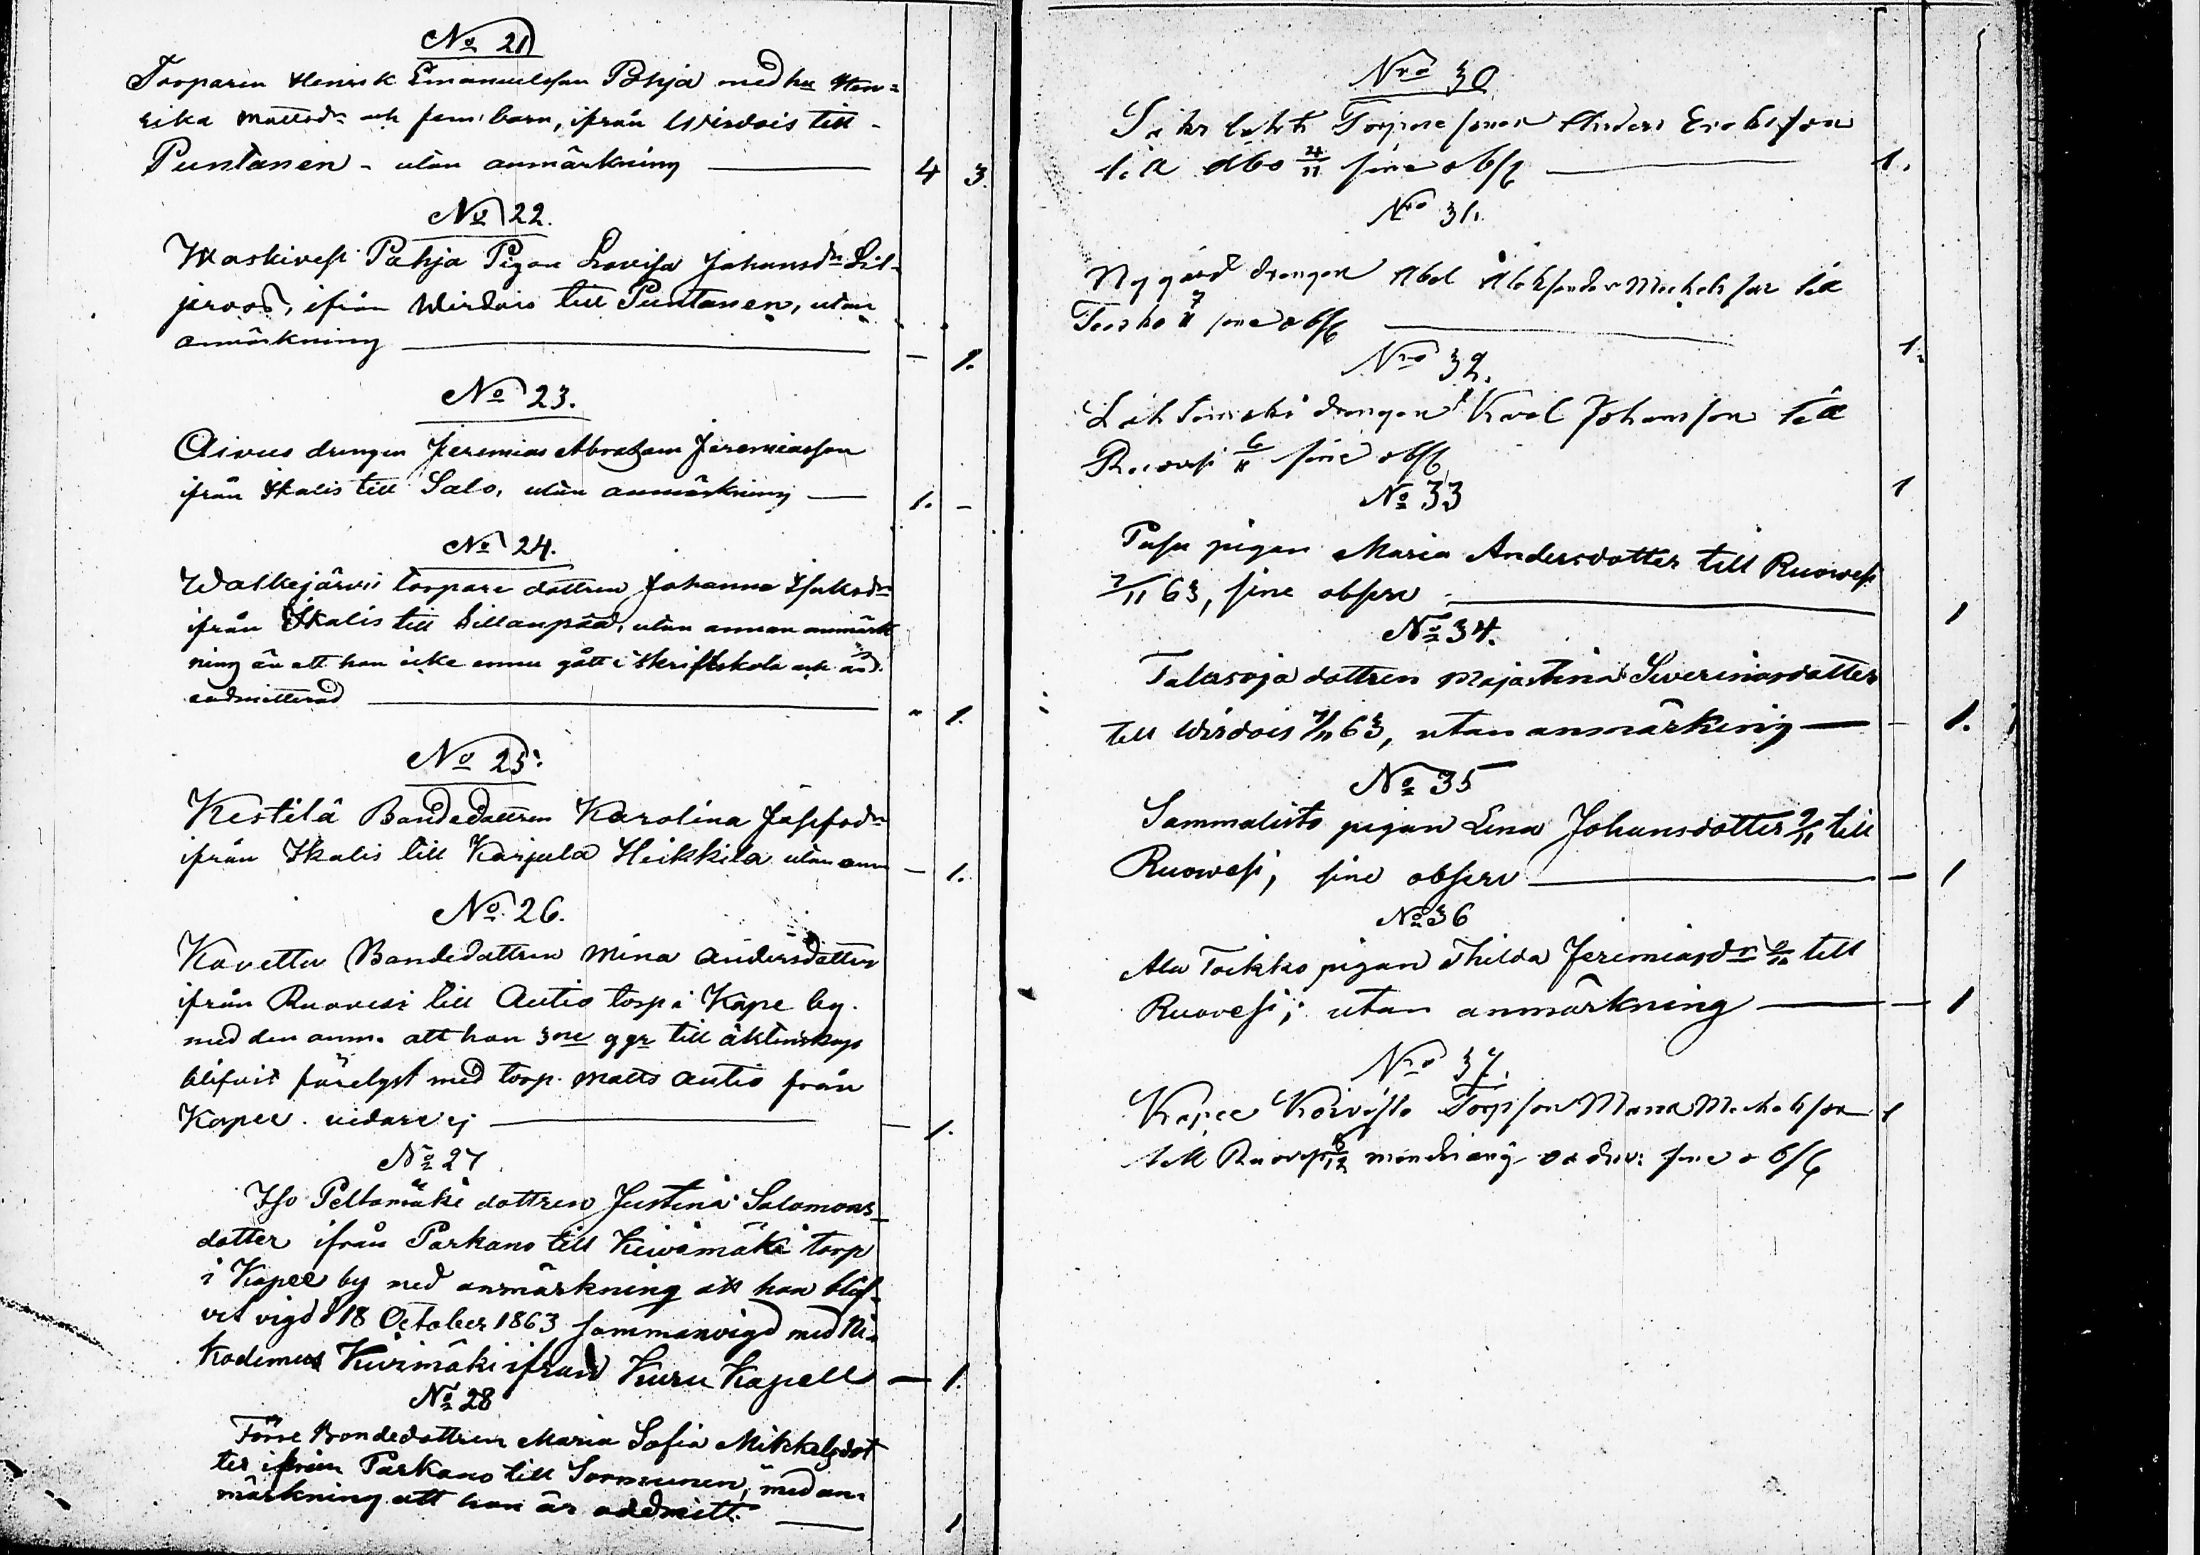 No 21
Torparen Henrik Emanuelsson Pohja med hu Hen=
rika Mattsdr och fem barn, ifrån Wirdois till
Puntanen - utan anmärkning 4 3.
No 22.
Waskivesi Pohja Pigan Lovisa Johansdr Lil-
jeroos, ifrån Wirdois till Puntanen, utan
anmärkning — 1.
No 23.
Aivus drengen Jeremias Abraham Jeremiasson
ifrån Ikalis till Salo, utan anmärkning 1. –
No 24.
Walkejärvi torpare dottren Johanna Isaksdr
ifrån Ikalis till Sillanpää, utan annan anmärk
ning än att hon icke ennu gått i skriftskola och
admitterad " 1.
No 25.
Kestilä Bondedottren Karolina Josefsdr
ifrån Ikalis till Karjula Heikkilä utan anm — 1.
No 26.
Kovettu Bondedottren Mina Andersdotter
ifrån Ruovesi till Autio torp i Kape by.
med den anm. att hon 3ne ggr till äktenskap
blifvit förelyst med torp. Matts Autio från
Kapee. vidare ej — 1.
No 27
Iso Peltomäki dottren Justina Salomons-
dotter ifrån Parkano till Kivimäki torp
i Kapee by med anmärkning att hon blif-
vit vigd 18 October 1863 sammanvigd med Ni-
kodemus Kivimäki ifrån Kuru Kapell — 1.
No 28
Förre Bondedottren Maria Sofia Mikkelsdot
ter ifrån Parkano till Sormunen, med an-
märkning att hon är admitt. 1
Nro 30
Torpare sonen Anders Eriksson
till Åbo 4/11 sine obs 1.
Nro 31.
Nygård drengen Abel Aleksander Michelsson till
7/11 sine obs 1.
Nro 32.
drengen Karl Johansson till
Ruovesi 6/11 sine obs 1
No 33
pigan Maria Andersdotter till Ruovesi
7/11 63, sine observ. 1
No 34.
Talasoja dottren Majastina Severinasdotter
till Wirdois 7/11 63, utan anmärkning — 1.
No 35
Sammalisto pigan Lena Johansdotter 9/11 till
Ruowesi, sine observ — 1
No 36
Ala Toikko pigan Thilda Jeremiasdr till
Ruovesi; utan anmärkning — 1
Nro 37.
Kapee Koivisto Torpson Mana Michelsson 1
till Ruovesi sine obs